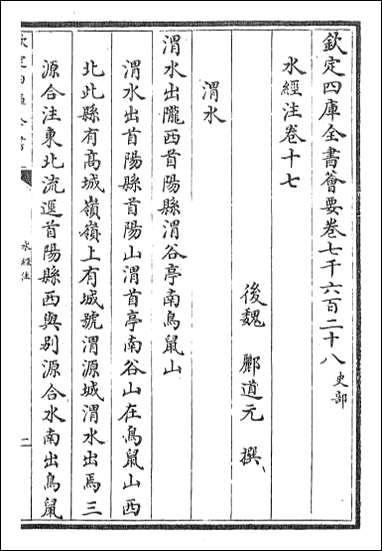 欽定四庫全書薈要卷七千六百二十八 史部
水經注卷十七
後魏 酈道元 撰
渭水
渭水出隴西首陽縣渭谷亭南鳥鼠山
渭水出首陽縣首陽山渭首亭南谷山在鳥鼠山西
北此縣有高城嶺嶺上有城號渭源城渭水出焉三
源合注東北流逕首陽縣西與别源合水南出鳥鼠
水經注
二